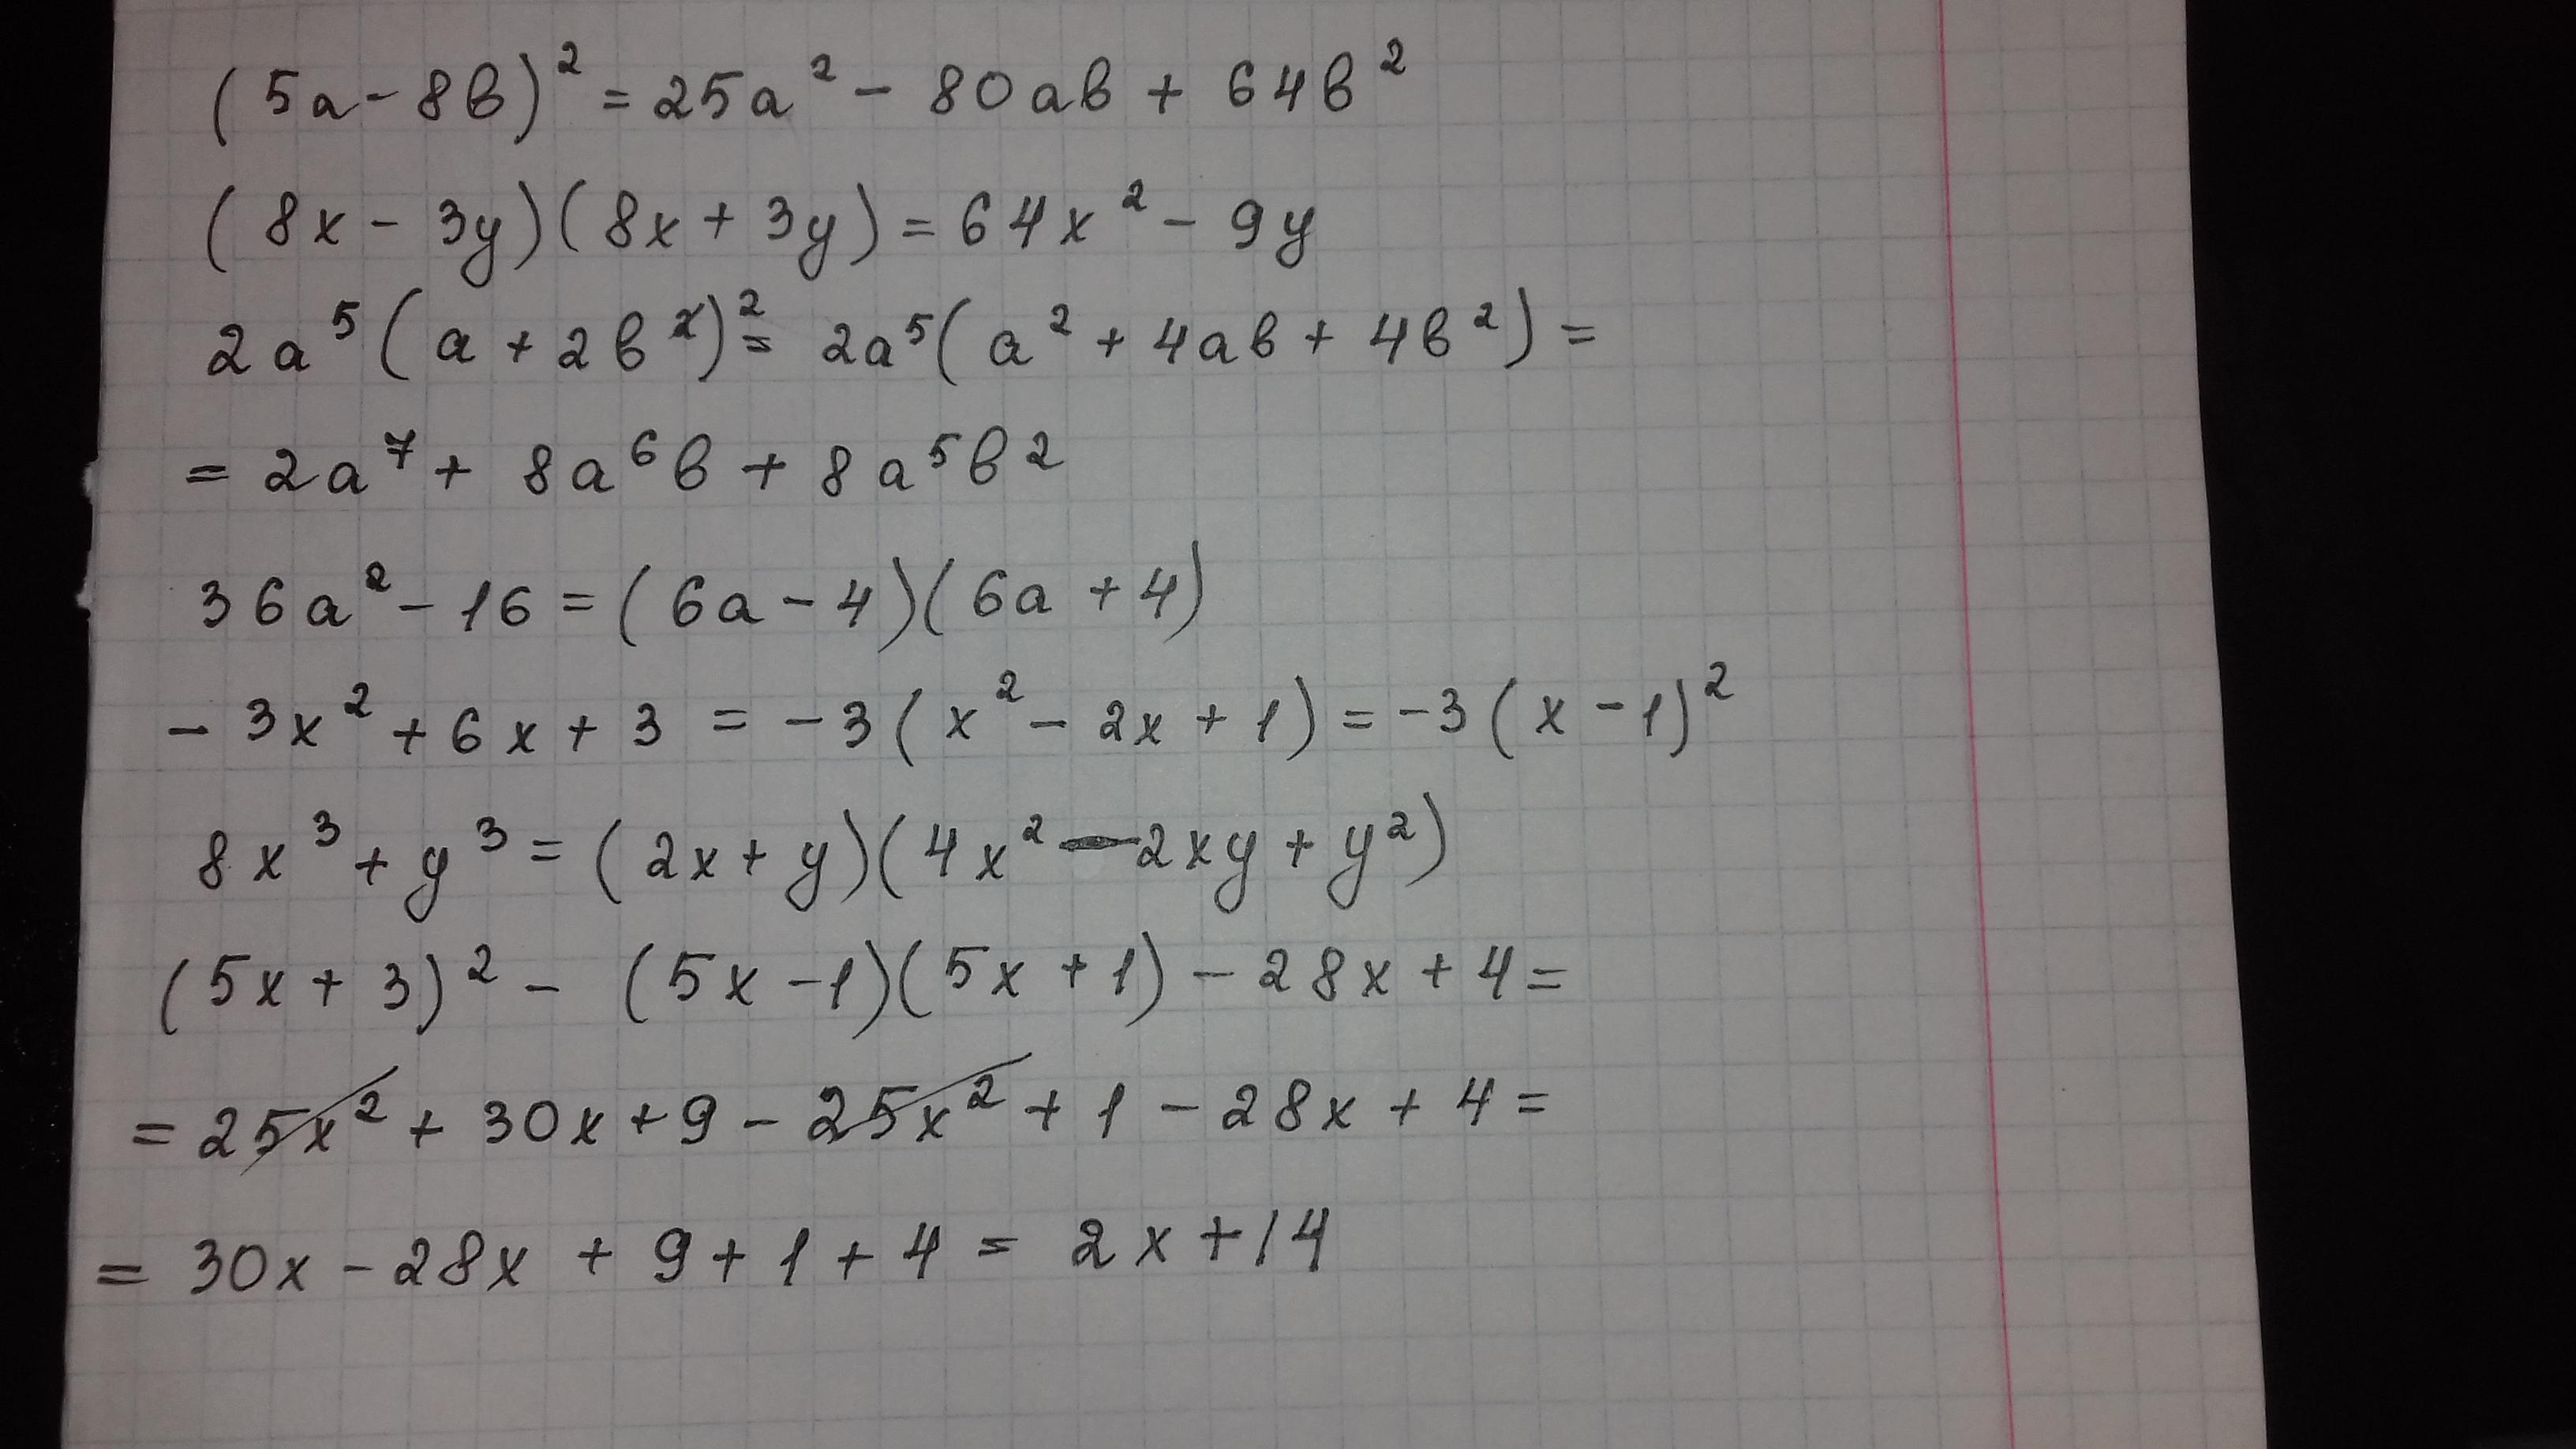 (5a - 8b)² = 25a² - 80ab + 64b²
(8x - 3y)(8x + 3y) = 64x² - 9y
2a⁵(a + 2b)² = 2a⁵(a² + 4ab + 4b²) =
= 2a⁷ + 8a⁶b + 8a⁵b²
36a² - 16 = (6a - 4)(6a + 4)
- 3x² + 6x + 3 = -3(x² - 2x + 1) = -3(x - 1)²
8x³ + y³ = (2x + y)(4x² - 2xy + y²)
(5x + 3)² - (5x - 1)(5x + 1) - 28x + 4 =
= 25x² + 30x + 9 - 25x² + 1 - 28x + 4 =
= 30x - 28x + 9 + 1 + 4 = 2x + 14